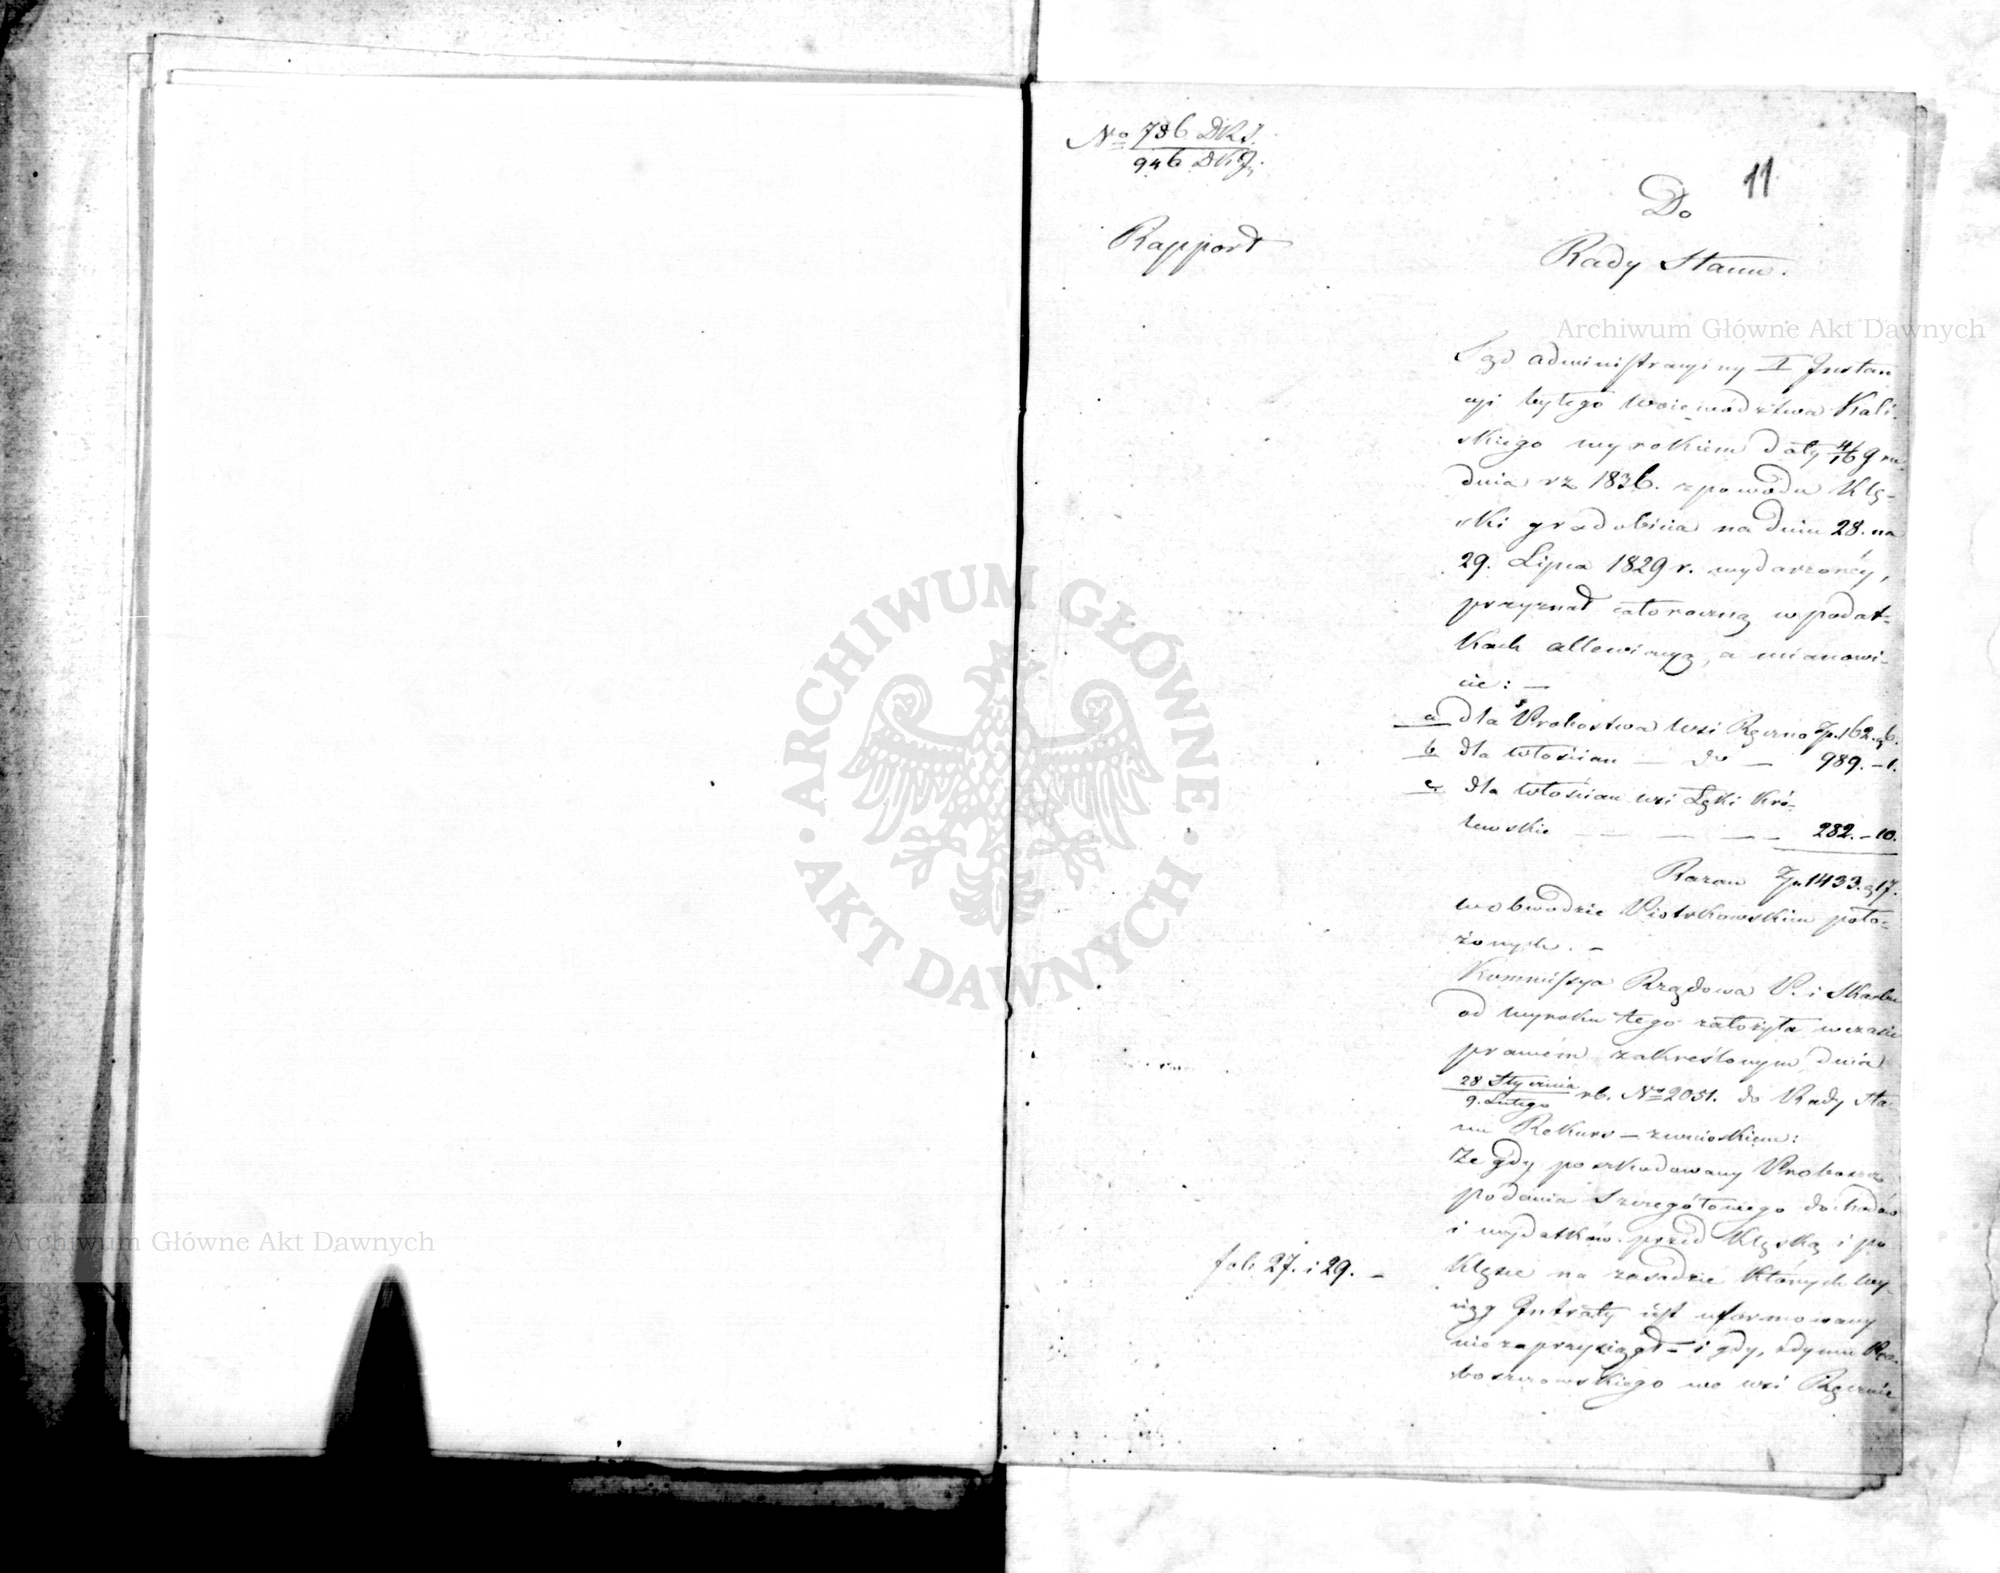 No 786 DRS.
946 DKG.
11
Rapport
Do
Rady Stanu.
Sąd administracyiny I Instan
cyi byłego Woiewództwa Kali-
skiego wyrokiem daty 4/16 Gru-
dnia rz 1836. z powodu Klę-
ski gradobicia na dniu 28. na
29. Lipca 1829 r. wydarzonéy,
przyznał całoroczną w podat-
kach allewiacyą, a mianowi-
cie: —
a dla Probostwa Wsi Rzeczno Zp. 162. g 6.
b dla Włościan — do — 989. - 1.
c. dla Włościan wsi Łęki Kró-
lewskie — — — — 282. - 10.
Razem Zp. 1433. g 17.
w obwodzie Piotrkowskim poło-
żonych. —
Kommissya Rządowa P. i Skarbu
od wyroku tego założyła w czasie
prawem zakreślonym dnia
28 Stycznia
9. Lutego rb. No 2051. do Rady Sta-
nu Rekurs — z wnioskiem:
Że gdy poszkodowany Proboszcz
podania szczegółowego dochodów
i wydatków przed Klęską i po
Klęsce na zasadzie których wy-
ciąg Intraty iest uformowany
nie zaprzysiągł — i gdy, z dymu Pro-
boszczowskiego we wsi Rzecznie
fol: 27. i 29. —
Archiwum Główne Akt Dawnych
Archiwum Główne Akt Dawnych
ARCHIWUM GŁÓWNE · AKT DAWNYCH ·